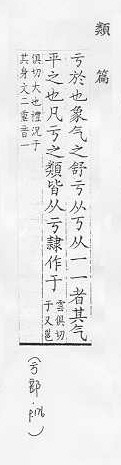 類篇
亏於也象气之舒亏从丂从一一者其气
平之也凡亏之類皆从亏隸作于
雲俱切
于又邕
俱切大也禮況于
其身文二重音一
(亏部